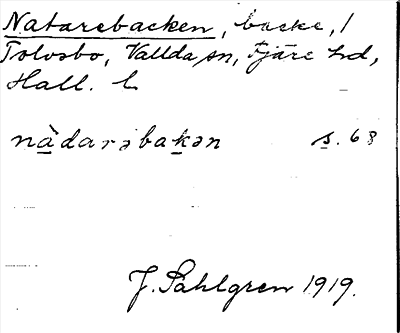 Natarebacken, backe, /
Tolvsbo, Vallda sn, Fjäre hd,
Hall. l.
nàdarəbakən s. 68
J. Sahlgren 1919.